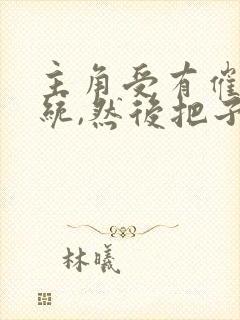 主角受有催
統,然後把子
林曦